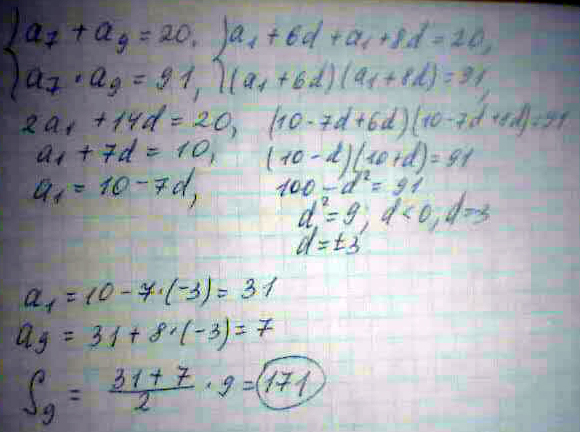 a₇ + a₉ = 20, a₁ + 6d + a₁ + 8d = 20,
a₇ · a₉ = 91, (a₁ + 6d)(a₁ + 8d) = 91,
2a₁ + 14d = 20, (10 - 7d + 6d)(10 - 7d + 8d) = 91
a₁ + 7d = 10, (10 - d)(10 + d) = 91
a₁ = 10 - 7d, 100 - d² = 91
d² = 9, d < 0, d = 3
d = ±3
a₁ = 10 - 7 · (-3) = 31
a₉ = 31 + 8 · (-3) = 7
S₉ = (31 + 7)/2 · 9 = 171